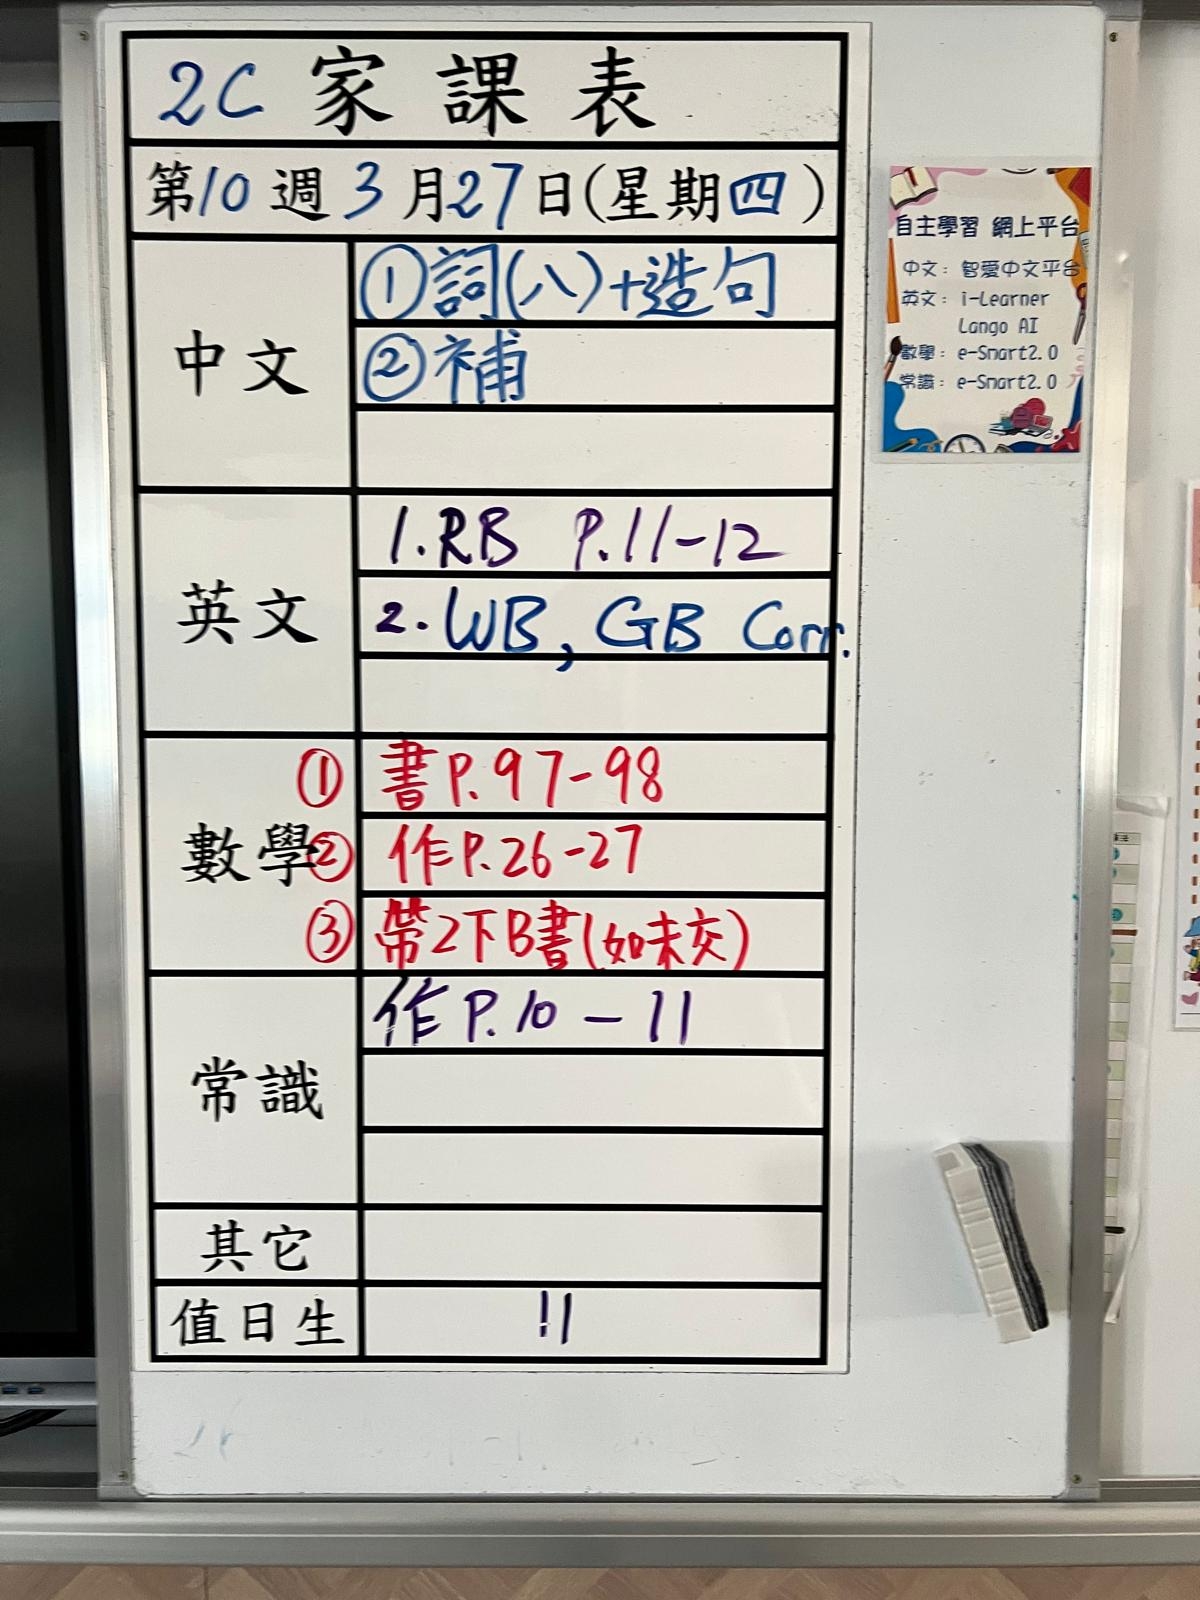 2C 家課表
第10週3月27日(星期四)
中文
①詞(八)+造句
②補
英文
1.RB P.11-12
2.WB, GB Corr.
數學
① 書P.97-98
② 作P.26-27
③ 帶2下B書(如未交)
常識
作P.10-11
其它
值日生
11
自主學習 網上平台
中文：智愛中文平台
英文：i-Learner
Lango AI
數學：e-Smart2.0
常識：e-Smart2.0